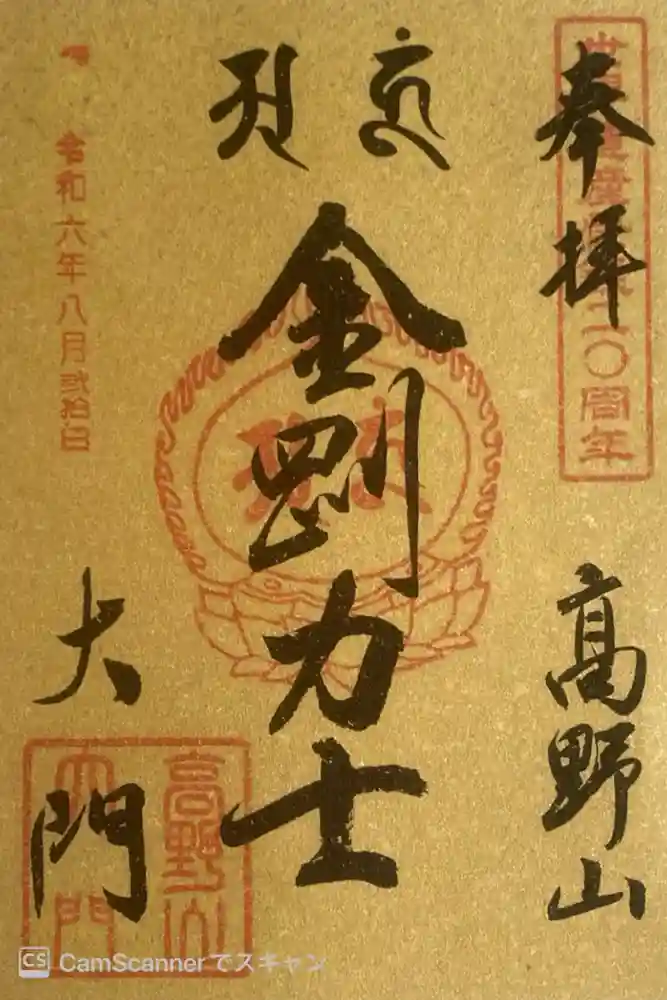 奉拝
高野山
金剛力士
令和六年八月弐拾日
大門
高野山
大門
CS CamScannerでスキャン